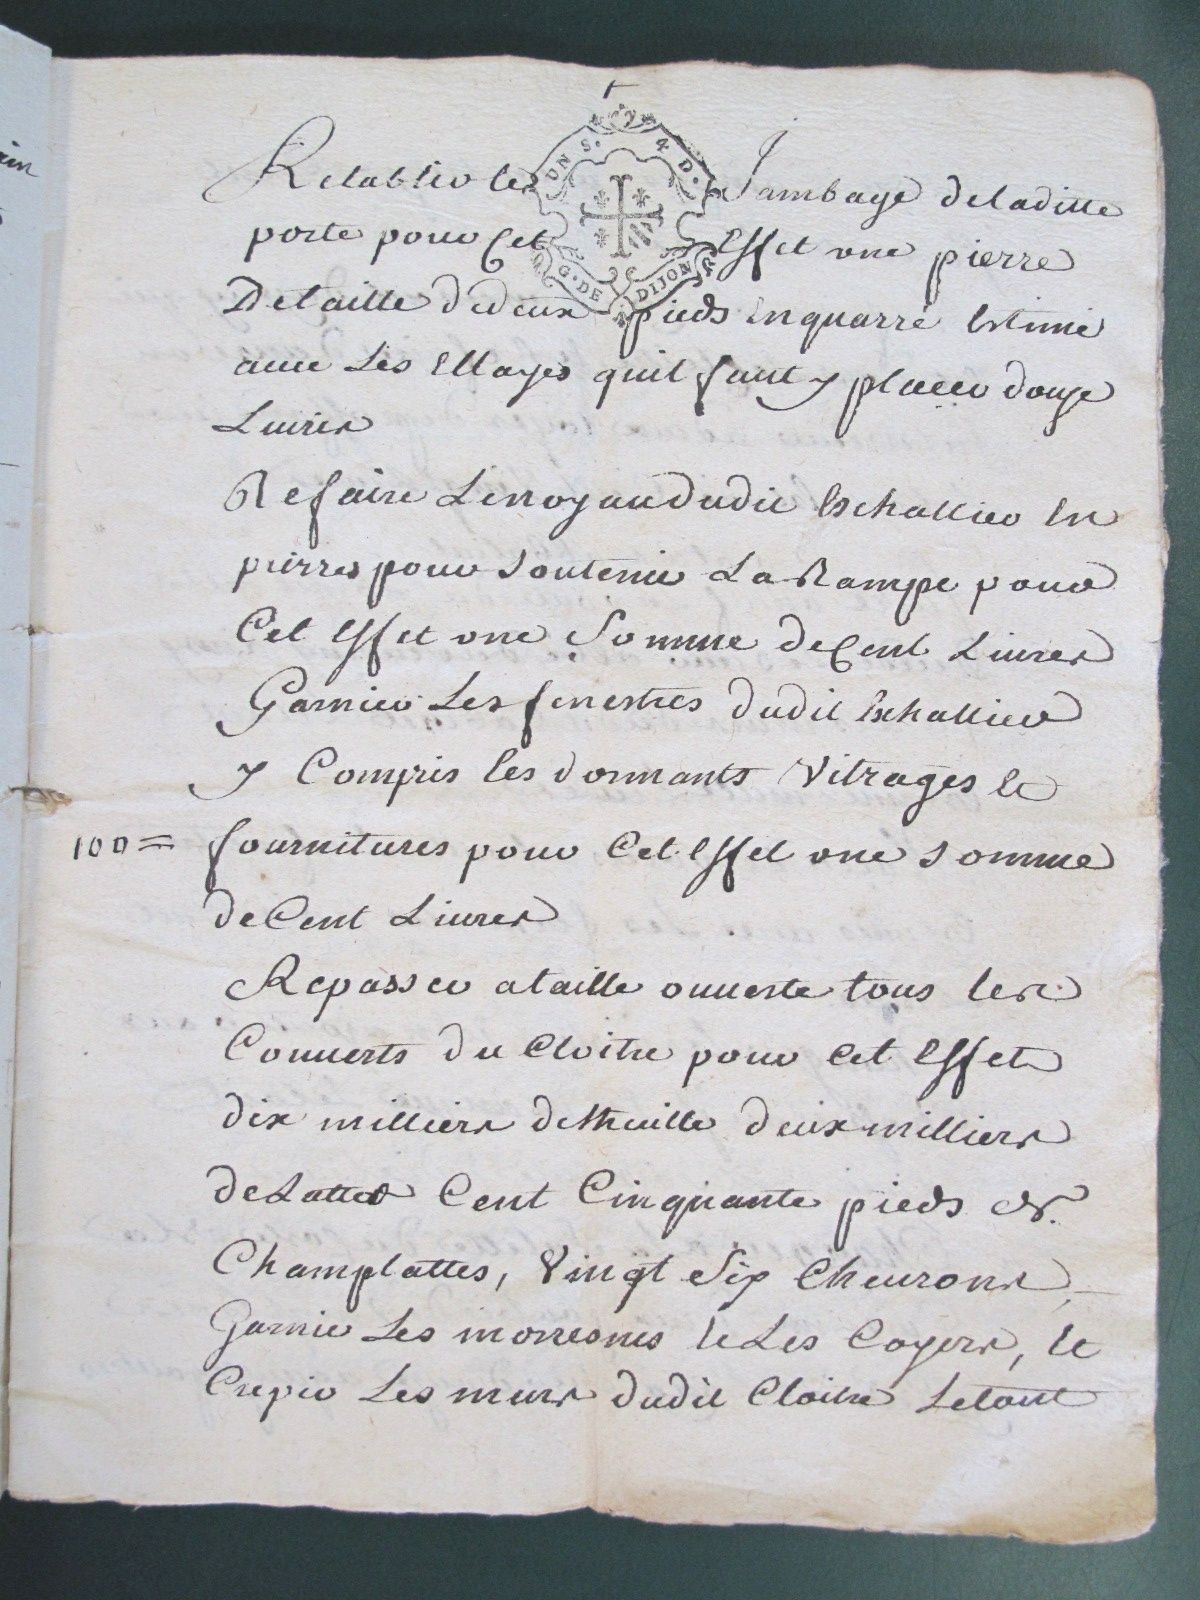 UN S. 4 D.
G. DE DIJON
Retablir les Jambage deladitte
porte pour Cet Effet une pierre
Detaille dedeux pieds Enquarré Estimé
avec Les quil faut y placer douze
Livres
Refaire Lenoyaududit Eschallier En
pierres pour Soutenir La Rampe pour
Cet Effet une Somme deCent Livres
Garnir Les fenestres dudit Eschallier
y Compris les dormants Vitrages Et
100= fournitures pour Cet Effet une Somme
deCent Livres
Repasser ataille ouverte tous les
Couverts du Cloitre pour Cet Effet
dix milliers dethuille deuxmilliers
deLattes Cent Cinquante pieds de
Champlattes, Vingt Six Chevrons,
Garnir Les EtLes Coyers, Et
Crepir Les murs dudit Cloitre Letout